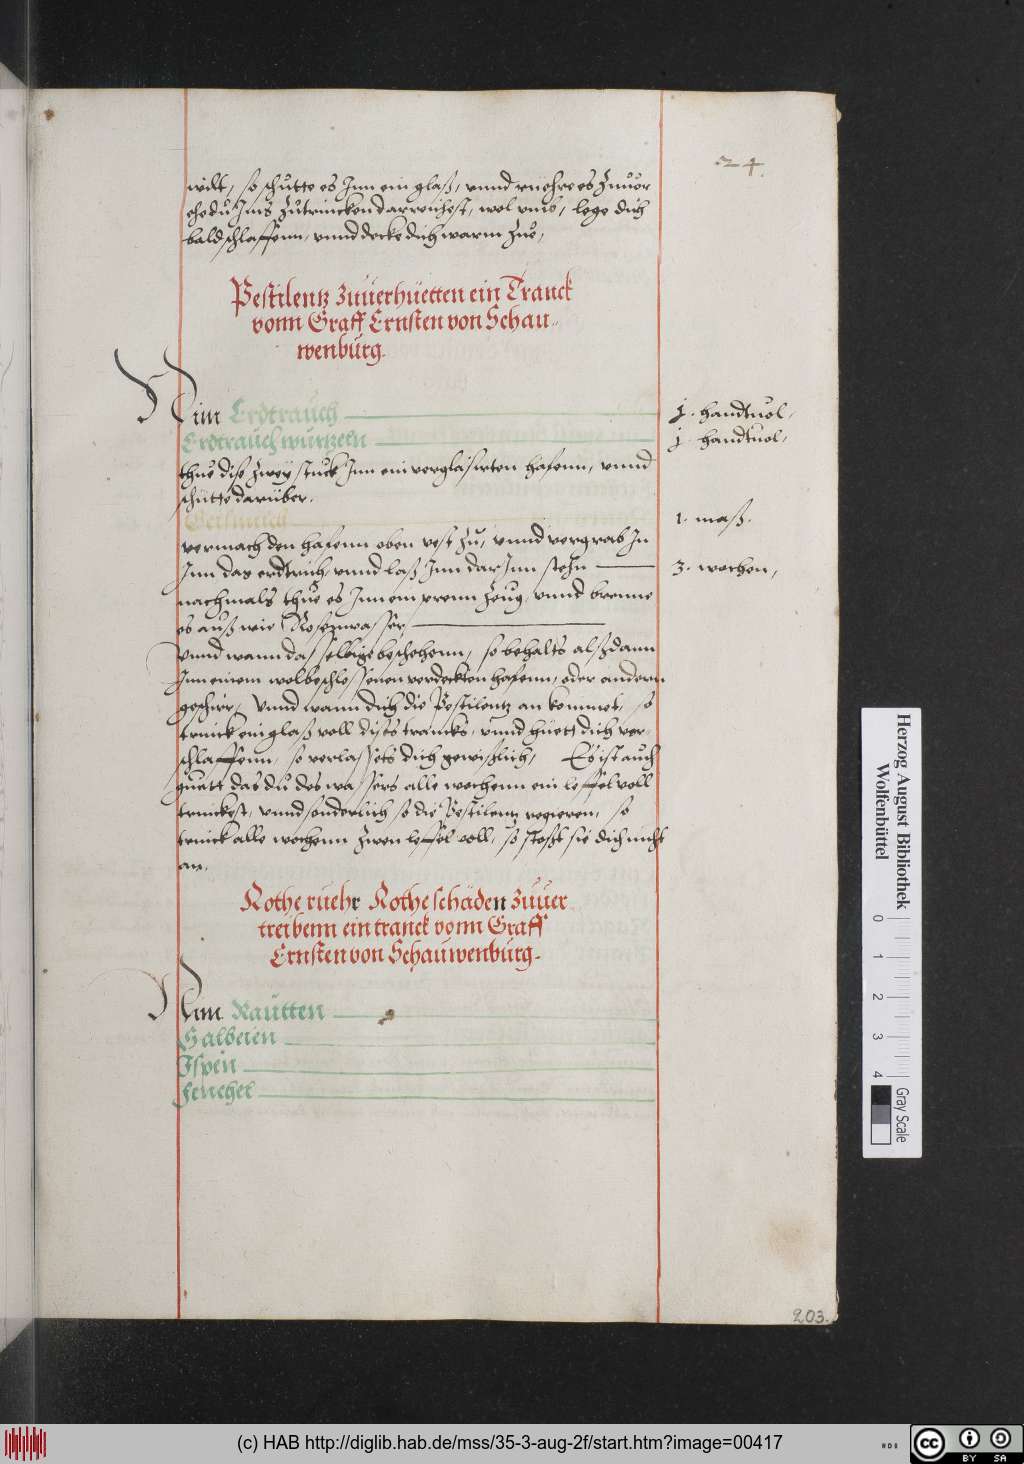 24.
wilt, so schütte es Inn ein glaß, vnnd rüehre es zuuor
ehe du Ims zutrinckend darreichest, wol vmb, lege dich
bald schlaffenn, vnnd decke dich warm zue,
Pestilentz zuuerhüetten ein Tranck
vonn Graff Ernsten von Schau-
wenburg.
Nim Erdtrauch j. handtuol,
Erdtrauch wurtzeln j. handtuol,
thue dise zwey stuck Inn ein verglasirten hafenn, vnnd
schütte darüber.
Geismilch 1. maß.
vermach den hafenn oben vest zu, vnnd vergrab In
Inn das erdtrich, vnnd laß Inn dar Inn stehn 3. wochen,
nachmals thue es Inn ein prenn zeug, vnnd brenne
es auß wie Rosenwasser,
vnnd wann das selbige beschehenn, so behalts alßdann
Inn einem wolbeschlossenen verdeckten hafenn, oder andern
geschirr, Vnnd wann dich die Pestilentz an kommet, so
trinck ein glaß voll dises trancks, vnnd hüett dich vor
schlaffenn, so verlassets dich gewißlich, Es ist auch
guett das du des wassers alle wochenn ein leffel voll
trinckest, vnnd sonderlich so die Pestilentz regieren, so
trinck alle wochenn zwen leffel voll, so stoßt sie dich nicht
an.
Rothe ruehr Rothe schäden zuuer
treibenn ein tranck vonn Graff
Ernsten von Schauwenburg.
Nim Rautten
Salbeien
Ispen
Fenchel
203.
Herzog August Bibliothek
Wolfenbüttel
0 1 2 3 4
Gray Scale
(c) HAB http://diglib.hab.de/mss/35-3-aug-2f/start.htm?image=00417
cc BY SA